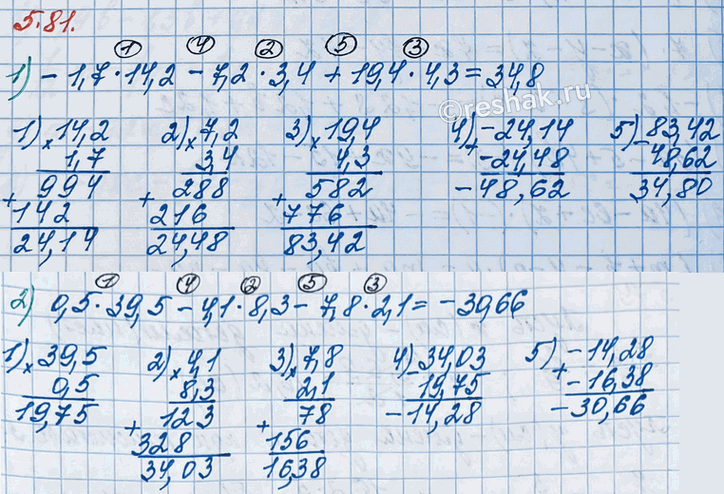 5.81.
① ④ ② ⑤ ③
1) - 1,7 · 14,2 - 7,2 · 3,4 + 19,4 · 4,3 = 34,8
©reshak.ru
1) × 14,2 2) × 7,2 3) × 19,4 4) + -24,14 5) - 83,42
1,7 3,4 4,3 -24,48 48,62
+ 994 + 288 + 582 -48,62 34,80
142 216 776
24,14 24,48 83,42
① ④ ② ⑤ ③
2) 0,5 · 39,5 - 4,1 · 8,3 - 7,8 · 2,1 = - 30,66
1) × 39,5 2) × 4,1 3) × 7,8 4) - 34,03 5) + -14,28
0,5 8,3 2,1 19,75 -16,38
19,75 + 123 + 78 -14,28 -30,66
328 156
34,03 16,38